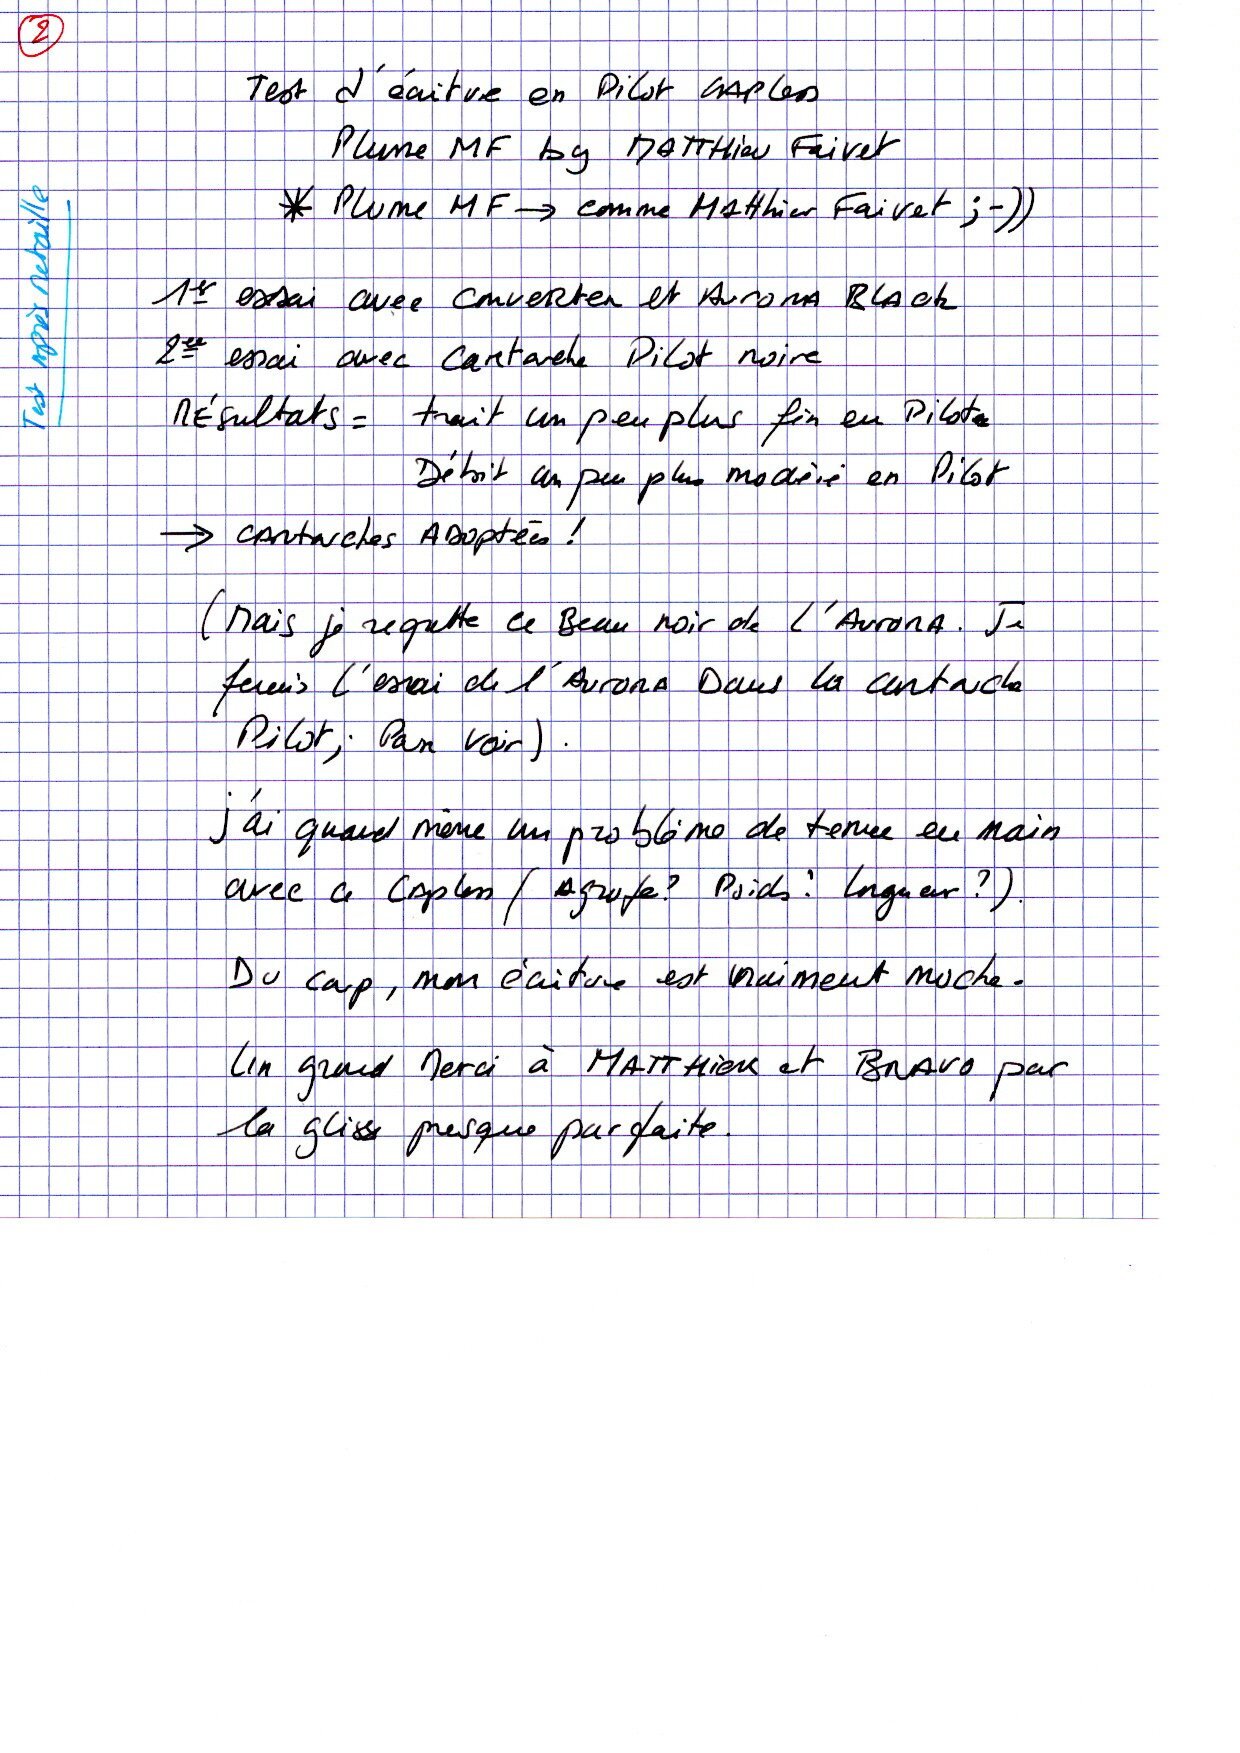 2
Test d'écriture en Pilot CAPless
Plume MF by MATTHieu Faivet
* Plume MF → comme MAtthieu Faivet ;-))
Test Après retaille
1er essai avec converter et AuroRA BLAck
2ee essai avec cartouche Pilot noire
RÉsultats = trait un peu plus fin en Pilot
Débit un peu plus modéré en Pilot
→ CARtouches ADoptées !
(Mais je regrette ce Beau noir de l'AuroRA. Je
ferais l'essai de l'AuroRA Dans la cartouche
Pilot, Pour voir).
j'ai quand même un problème de tenue en main
avec ce CApless (Agrafe? Poids? longueur?).
Du coup, mon écriture est vraiment moche.
Un grand Merci à MATTHieu et BRAVO par
la glisse presque parfaite.